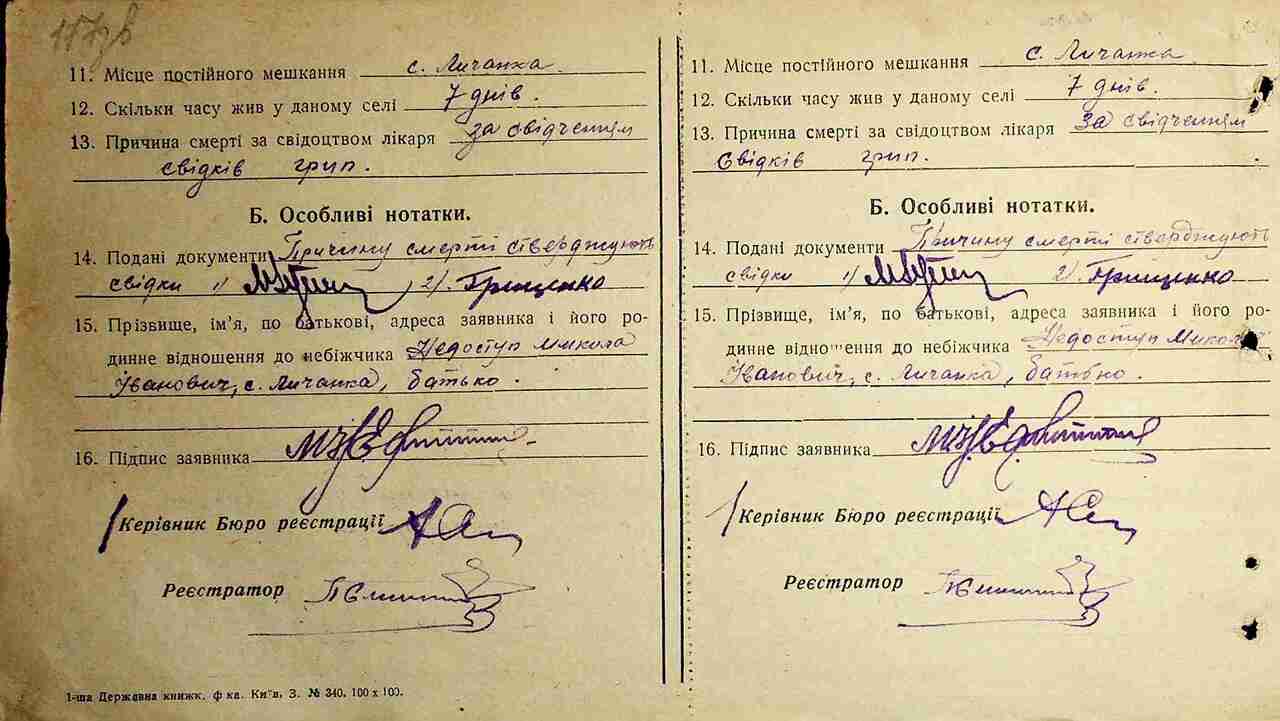 11. Місце постійного мешкання с. Личанка.
12. Скільки часу жив у даному селі 7 днів.
13. Причина смерті за свідоцтвом лікаря за свідченням
свідків грип.
Б. Особливі нотатки.
14. Подані документи Причину смерті стверджують
свідки 1) 2). Грищенко
15. Прізвище, ім’я, по батькові, адреса заявника і його ро-
динне відношення до небіжчика Недоступ Микола
Іванович, с. Личанка, батько.
16. Підпис заявника
Керівник Бюро реєстрації
Реєстратор
1-ша Державна книжк. ф-ка. Київ, З. № 340. 100 x 100.
11. Місце постійного мешкання с. Личанка
12. Скільки часу жив у даному селі 7 днів.
13. Причина смерті за свідоцтвом лікаря за свідченням
Свідків грип.
Б. Особливі нотатки.
14. Подані документи Причину смерті стверджують
свідки 1) 2). Грищенко
15. Прізвище, ім’я, по батькові, адреса заявника і його ро-
динне відношення до небіжчика Недоступ Микола
Іванович, с. Личанка, батько.
16. Підпис заявника
Керівник Бюро реєстрації
Реєстратор